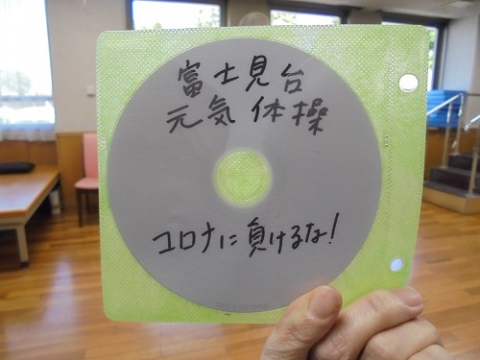 富士見台
元気体操
コロナに負けるな!